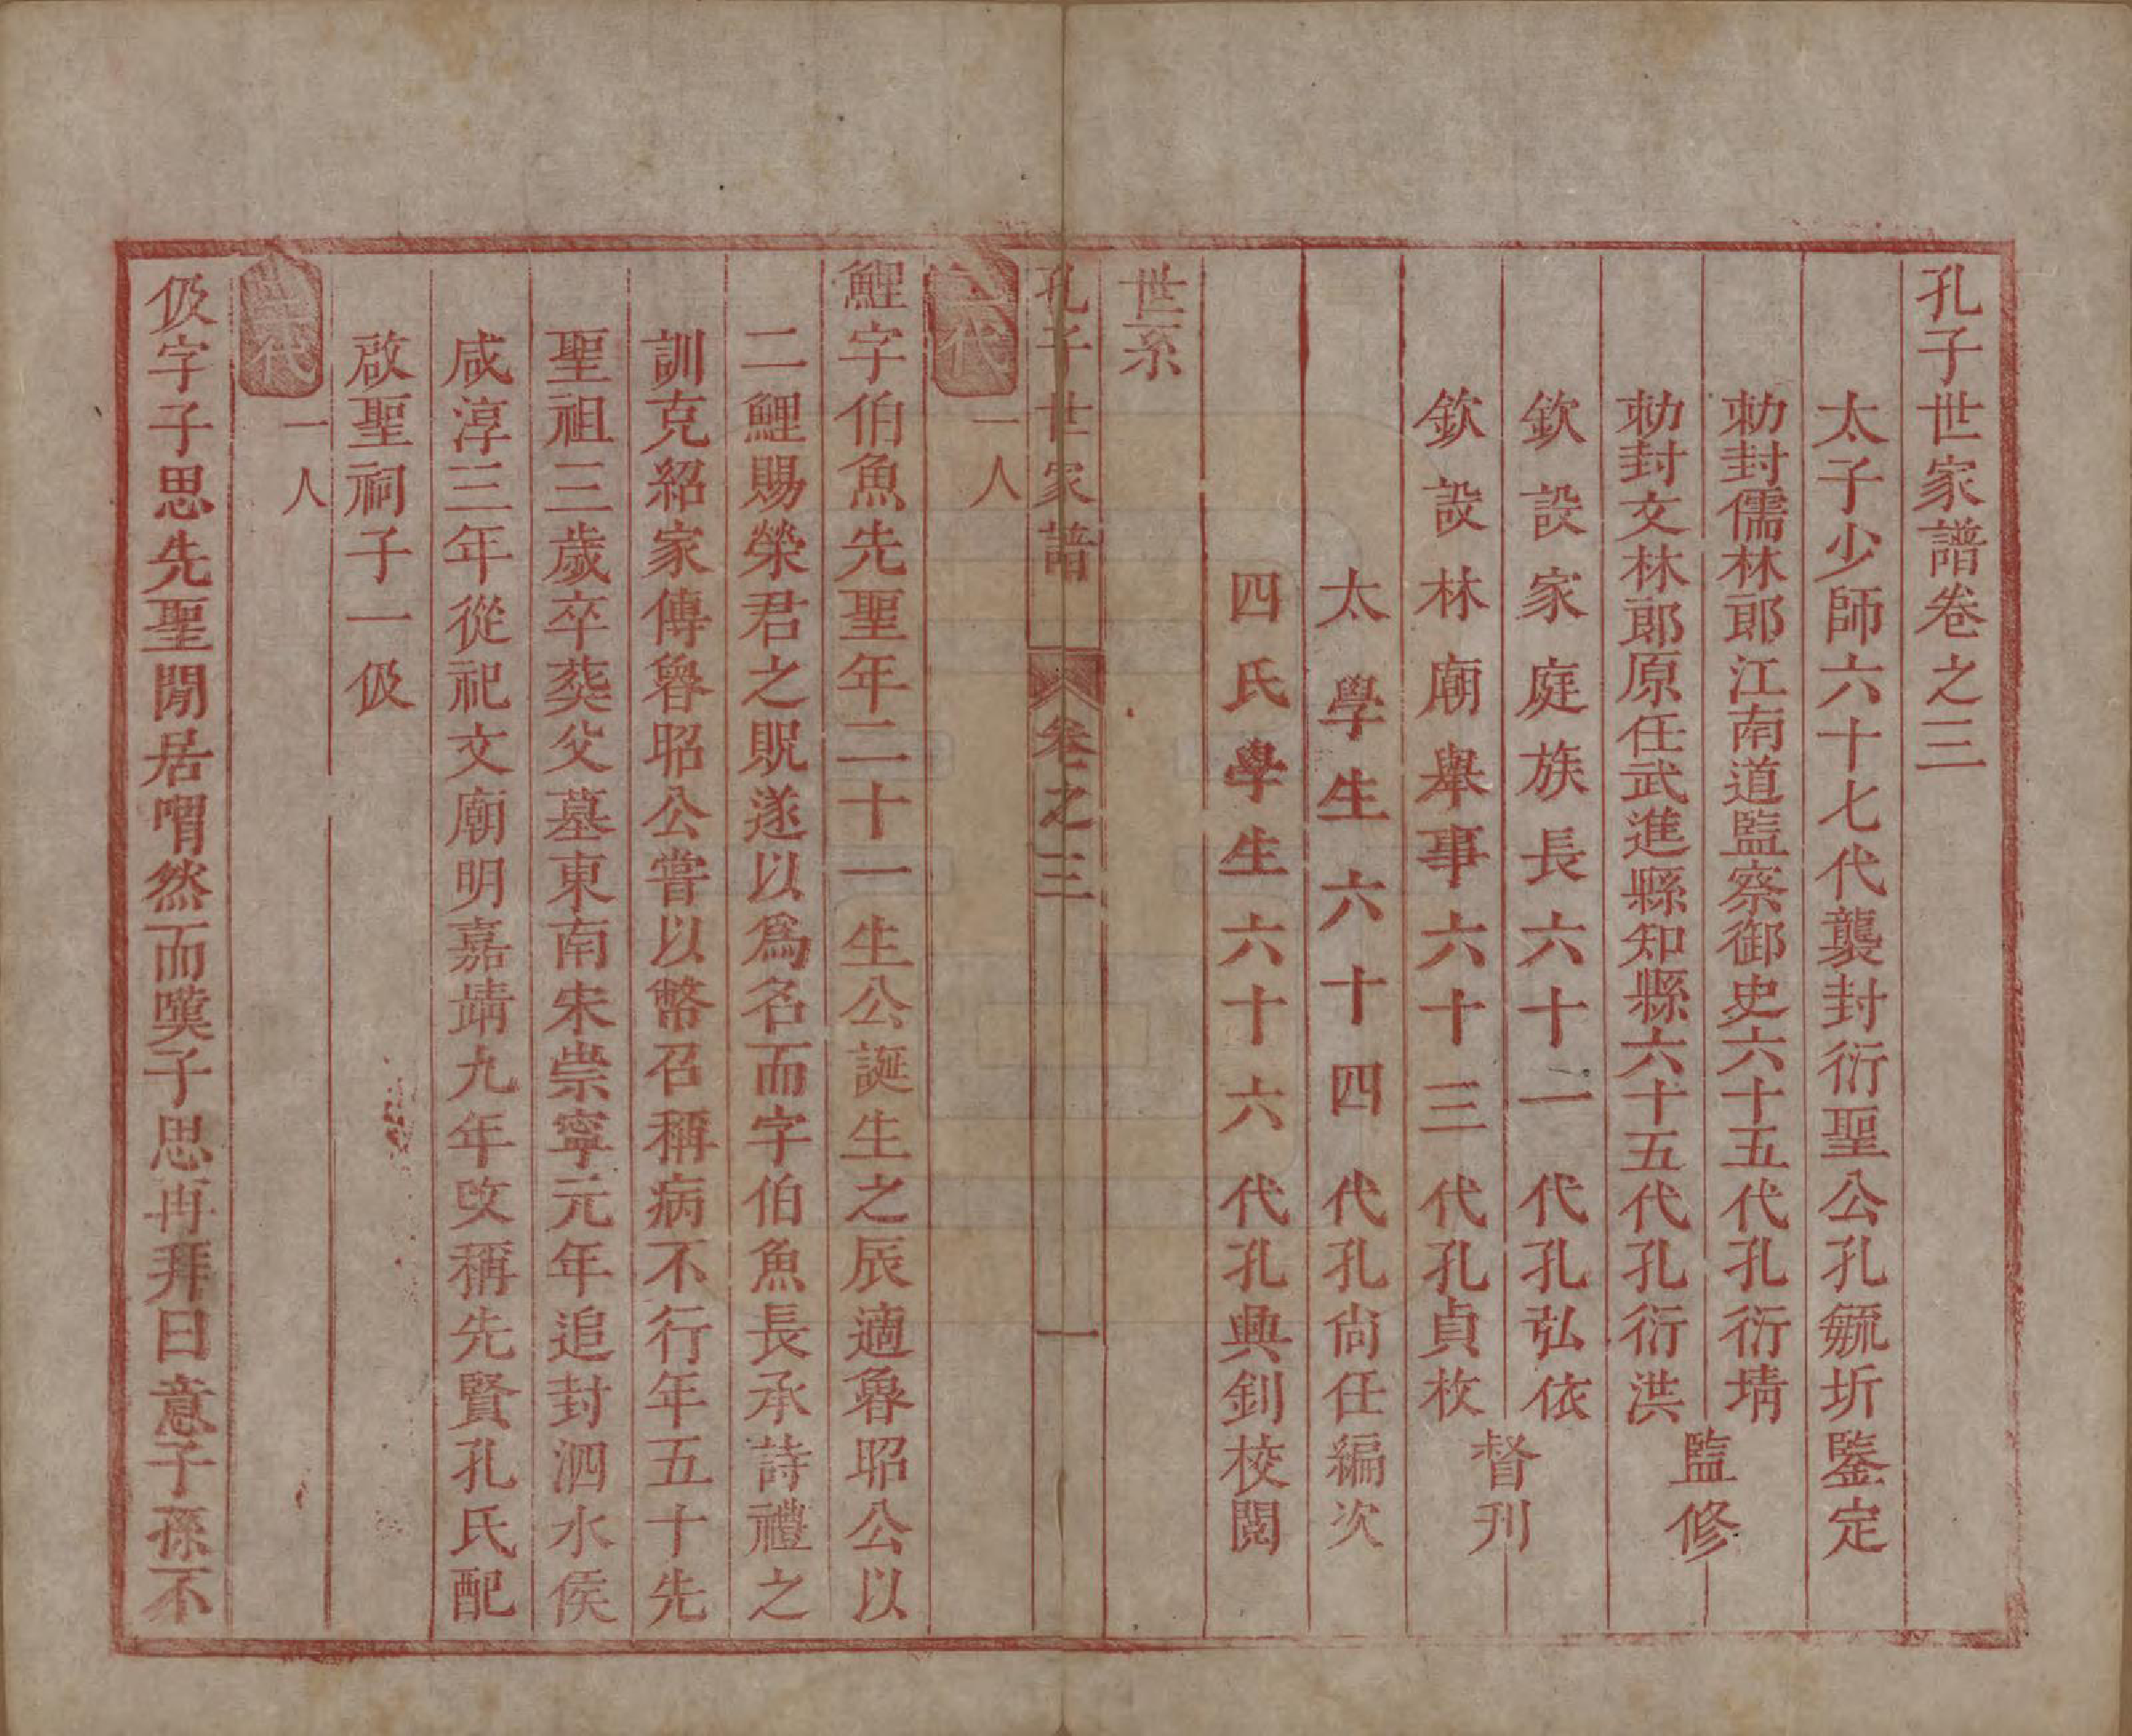 孔子世家譜卷之三
太子少師六十七代襲封衍聖公孔毓圻鑒定
勅封儒林郎江南道監察御史六十五代孔衍𡊨
勅封文林郎原任武進縣知縣六十五代孔衍洪
監修
欽設家庭族長六十一代孔弘依
欽設林廟舉事六十三代孔貞枚
督刊
太學生六十四代孔尙任編次
四氏學生六十六代孔興釗校閱
世系
孔子世家譜 卷之三 一
二代 一人
鯉字伯魚先聖年二十一生公誕生之辰適魯昭公以
二鯉賜榮君之貺遂以爲名而字伯魚長承詩禮之
訓克紹家傳魯昭公嘗以幣召稱病不行年五十先
聖祖三歲卒葬父墓東南宋崇寧元年追封泗水侯
咸淳三年從祀文廟明嘉靖九年改稱先賢孔氏配
啟聖祠子一伋
三代 一人
伋字子思先聖閒居喟然而嘆子思再拜曰意子孫不